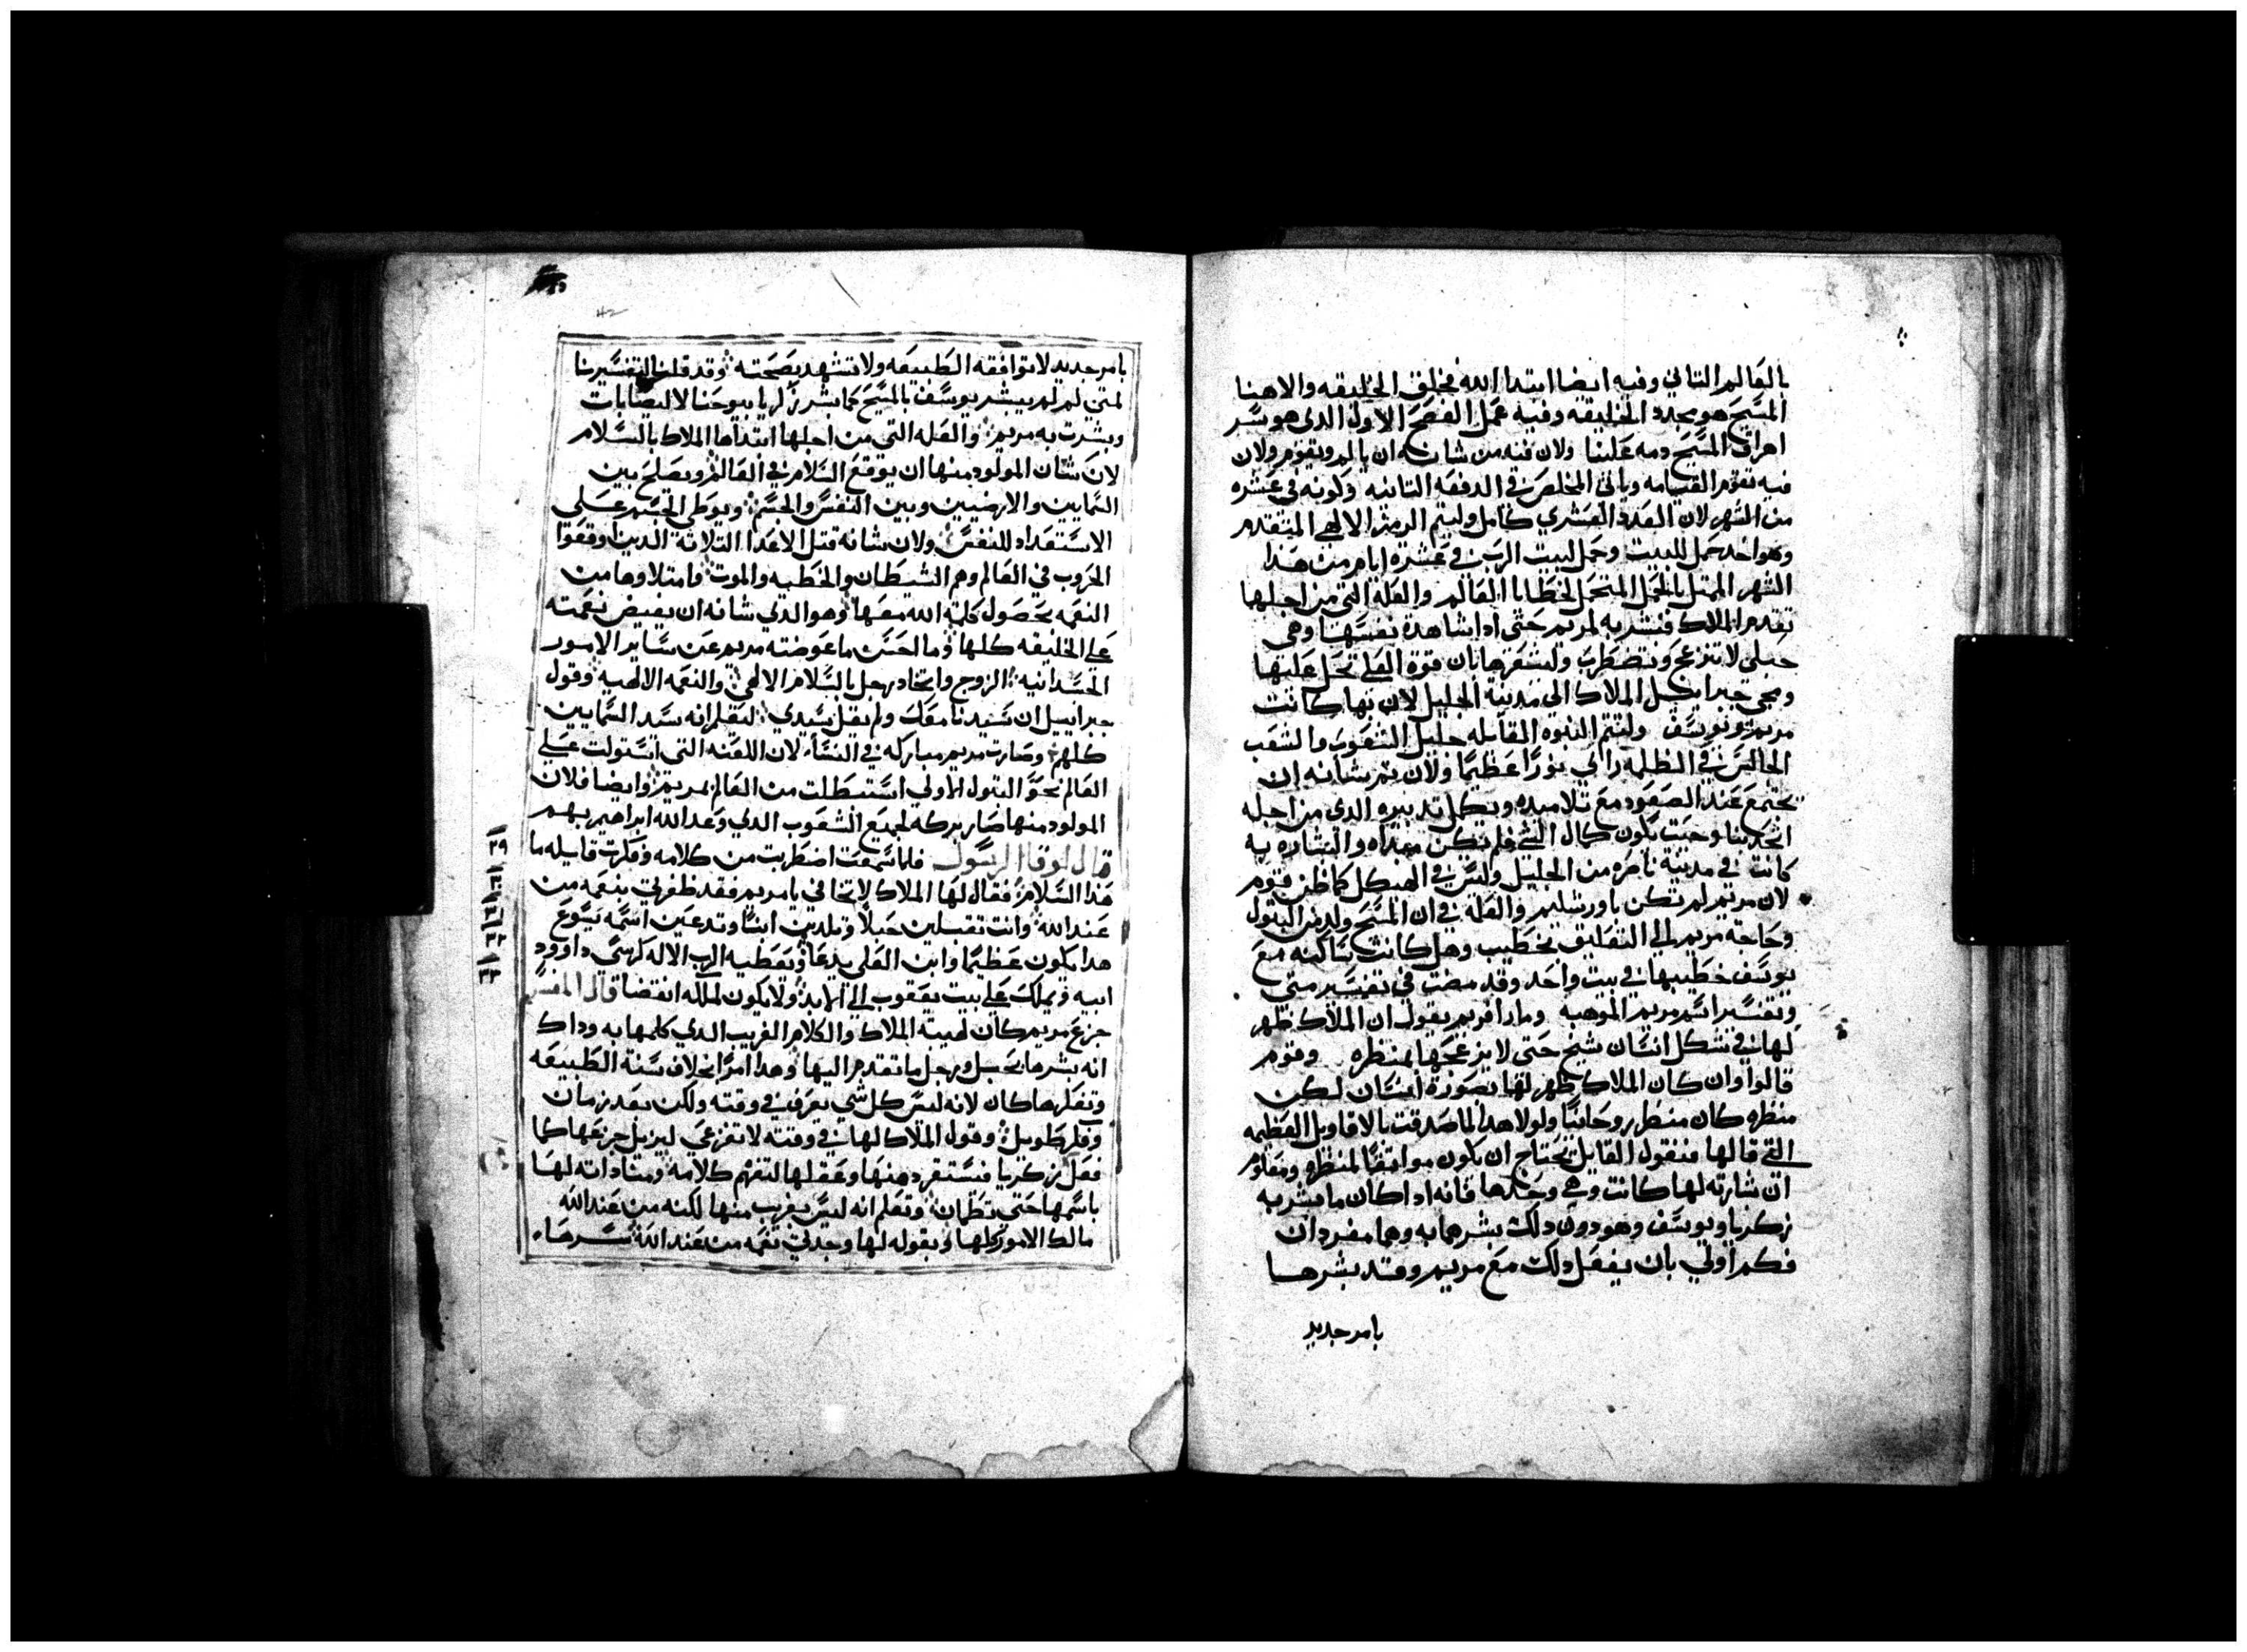 بالعالم التاني وفيه ايضا ابتدا الله بخلق الخليقه والاهنا
المسيح هو مجدد الخليقه وفيه عمل الفصح الاول الدي هو سر
اهراق المسيح دمه علينا ولان فيه من شانه ان يالم ويقوم ولان
فيه تقوم القيامه وياتي المخلص في الدفعه التانيه وكونه في عشره
من الشهر لان العدد العشري كامل وليتم الرمز الالهي المتقدم
وهو اخد حمل للبيت وحمل لبيت الرب في عشرة ايام من هدا
الشهر الممتل بالحمل المتحمل لخطايا العالم والعلة التي من اجلها
تقدم الملاك فبشر به لمريم حتى ادا شاهدة نفسها وهي
حبلي لا تنزعج وتضطرب وليشعرها بان قوة العلي تحل عليها
ومجي جبراييل الملاك الي مدينة الجليل لان بها كانت
مريم ويوسف ولتتم النبوه القايله جليل الشعوب والشعب
الجالس في الظلمه راي نورا عظيما ولان تم شانه ان
يجتمع عند الصعود مع تلاميده ويكمل تدبيره الدي من اجله
اتحد بنا وحيت يكون كمال الشي فلم تكن مبداه والبشاره به
كانت في مدينة ناصره من الجليل وليس في الهيكل كما ظن قوم
لان مريم لم تكن باورشليم والعلة في ان المسيح ولد من البتول
وحاجة مريم الي التعليق بخطيب وهل كانت ساكنه مع
يوسف خطيبها في بيت واحد وقد مضت في تفسير متي
وتفسير اسم مريم الموهبه ومار افريم يقول ان الملاك ظهر
لها في شكل انسان شيخ حتى لا يزعجها بمنظره وقوم
قالوا وان كان الملاك ظهر لها بصورة انسان لكن
منظره كان منظر روحانيا ولولا هدا لما صدقت بالاقاويل العظيمه
التي قالها فنقول القايل تحتاج ان يكون موافقا لمنظره ومعلوم
ان بشارته لها كانت وهي وحدها فانه ادا كان ما بشر به
زكريا ويوسف وهو دون دلك بشرهما به وهما مفردان
فكم اولي بان يفعل دلك مع مريم وقد بشرها
بامر جديد
بامر جديد لا توافقه الطبيعه ولا تشهد بصحته وقد قلنا بتفسيرنا
لمتي لم لم يبشر يوسف بالمسيح كما بشر زكريا بيوحنا لا اليصابات
وبشرت به مريم والعله التي من اجلها ابتداها الملاك بالسلام
لان شان المولود منها ان يوقع السلام في العالم ويصلح بين
السمايين والارضيين وبين النفس والجسم ويوطي الجسم علي
الاستعداد للنفس ولان شانه قتل الاعدا التلاتة الدين اوقعوا
الحروب في العالم وهم الشيطان والخطيه والموت وامتلاوها من
النعمه بحصول كلمة الله معها وهو الدي شانه ان يفيض نعمته
علي الخليقه كلها وما احسن ما عوضته مريم عن ساير الامور
الجسدانيه الزوج واتحاد رجل بالسلام الالهي والنعمه الالهيه وقول
جبراييل ان سيدنا معك ولم يقل سيدي ليعلم انه سيد السمايين
كلهم وصارت مريم مباركه في النسا لان اللعنه التي استولت علي
العالم بحوا البتول الاولي استبطلت من العالم بمريم وايضا فلان
المولود منها صار بركه لجميع الشعوب الدي وعد الله ابراهيم بهم
قال لوقا الرسول فلما سمعت اضطربت من كلامه وفكرت قايله ما
هدا السلام فقال لها الملاك لا تخافي يا مريم فقد ظفرتي بنعمه من
عند الله وانت تقبلين حبلا وتلدين ابنا وتدعين اسمه يسوع
هدا يكون عظيما وابن العلي يدعا ويعطيه الرب الاله كرسي داوود
ابيه ويملك علي بيت يعقوب الي الابد ولا يكون لملكه انقضا قال المفسر
جزع مريم كان لهيبة الملاك والكلام الغريب الدي كلمها به وداك
انه بشرها بحبل ورجل ما تقدم اليها وهدا امرا بخلاف سنة الطبيعه
وتفكرها كان لانه ليس كل شي يعرف في وقته ولكن بعد زمان
وفكر طويل وقول الملاك لها في وقته لا تفزعي ليزيل جزعها كما
فعل بزكريا فيستقر دهنها وعقلها لتفهم كلامه ومناداته لها
باسمها حتى تطمان وتعلم انه ليس بغريب منها لكنه من عند الله
مالك الامور كلها وبقوله لها وجدتي نعمه من عند الله سرها